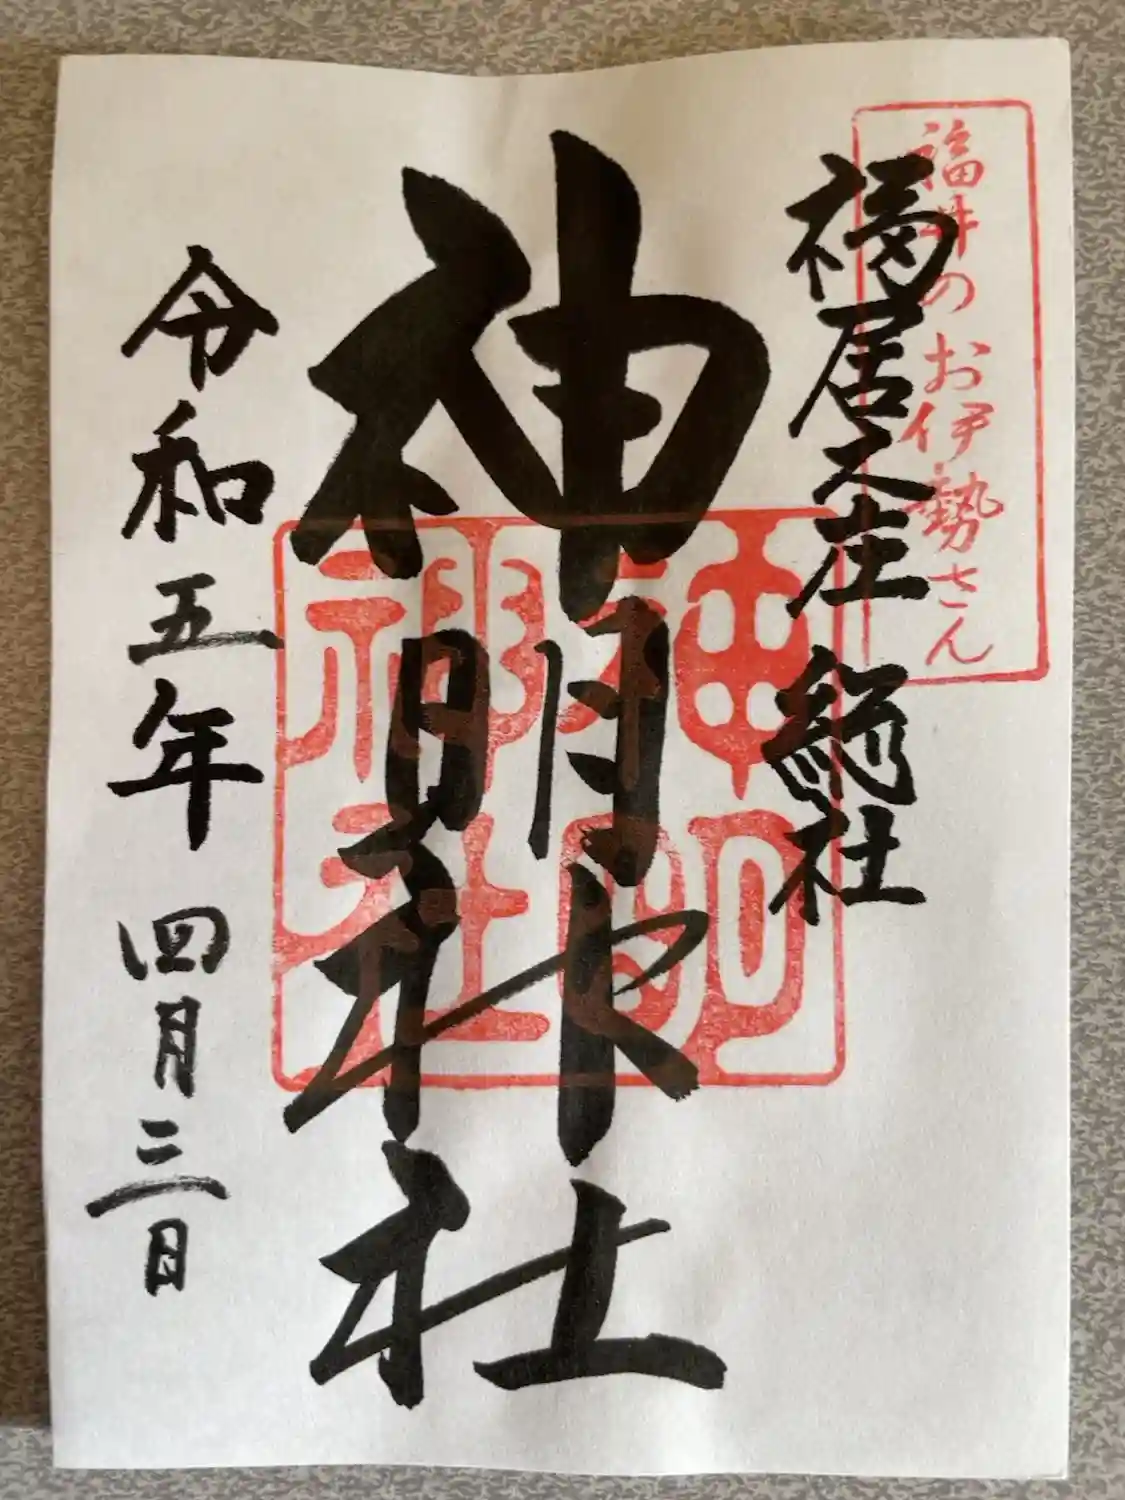 福井のお伊勢さん
福居之庄 総社
神明神社
神明
神社
令和五年 四月三日